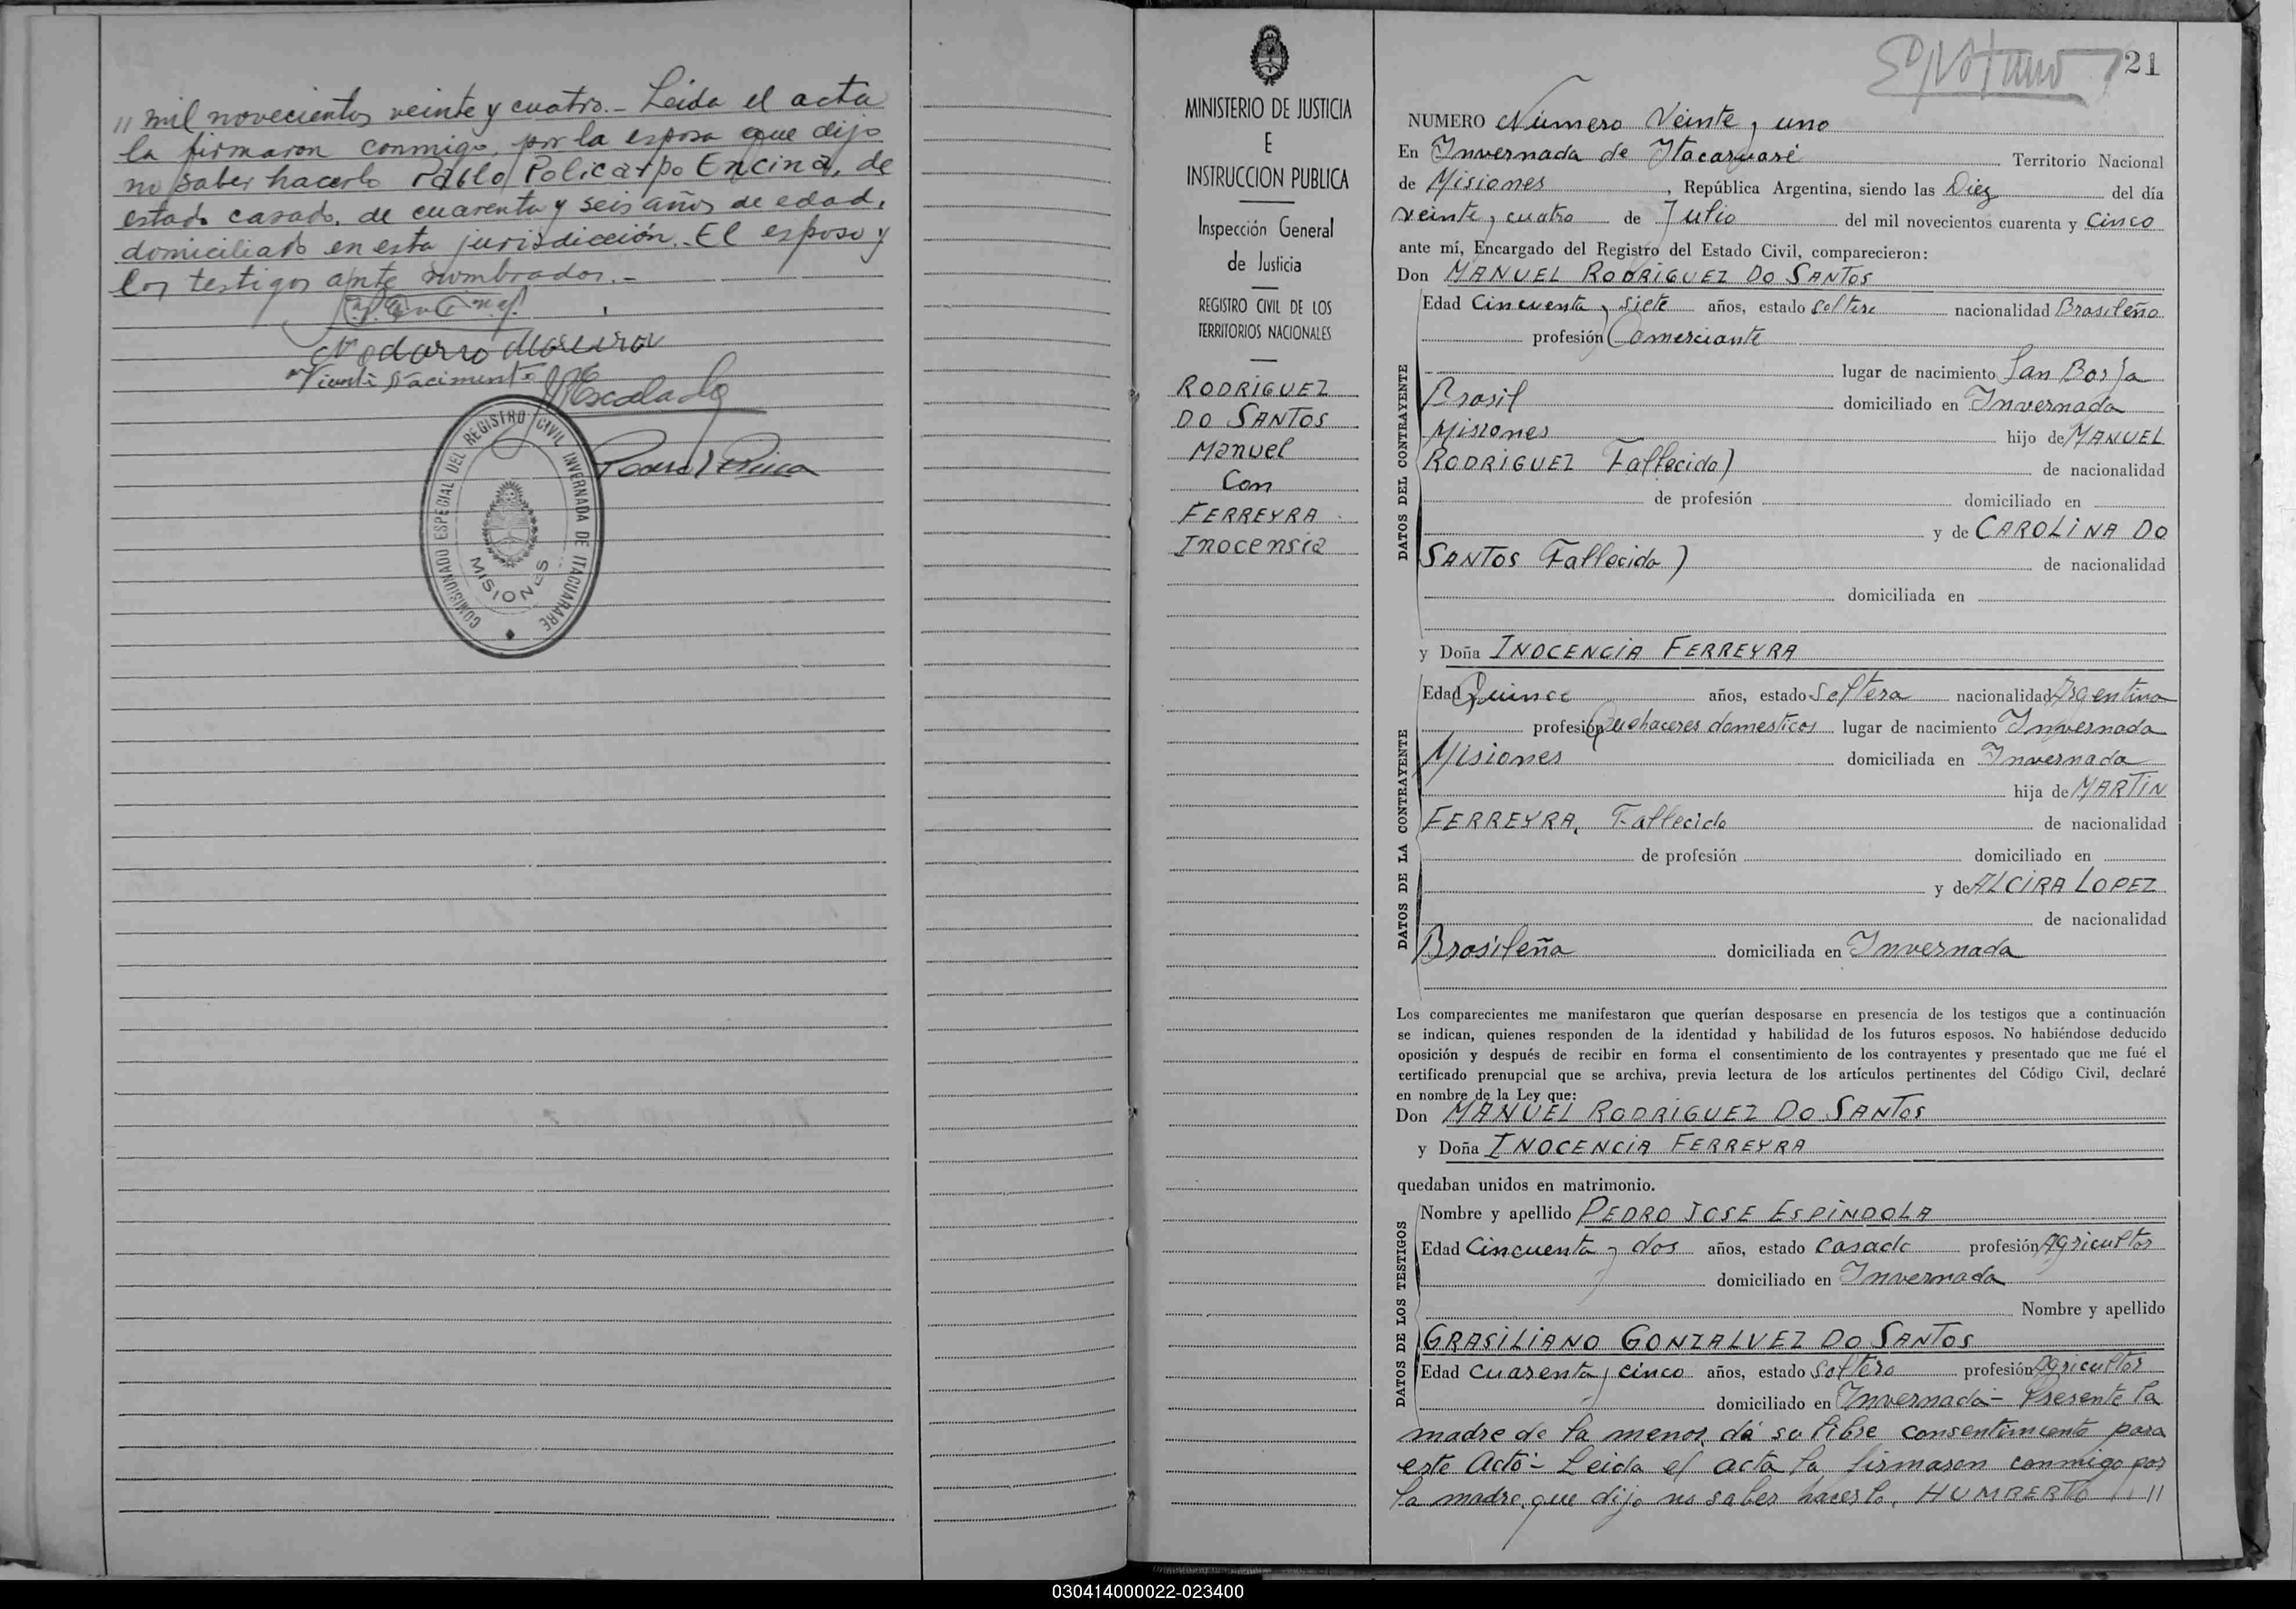 " mil novecientos veinte y cuatro.- Leida el acta
la firmaron conmigo, por la esposa que dijo
no saber hacerlo Pablo Policarpo Encina, de
estado casado, de cuarenta y seis años de edad,
domiciliado en esta jurisdicción. El esposo y
los testigos ante nombrados.-
Vicente Nacimento
Escalada
COMISIONADO ESPECIAL DEL REGISTRO CIVIL INVERNADA DE ITACUARARE
MISIONES
MINISTERIO DE JUSTICIA
E
INSTRUCCION PUBLICA
Inspección General
de Justicia
REGISTRO CIVIL DE LOS
TERRITORIOS NACIONALES
RODRIGUEZ
DO SANTOS
Manuel
Con
FERREYRA
Inocensia
21
NUMERO Número Veinte y uno
En Invernada de Itacaruaré Territorio Nacional
de Misiones, República Argentina, siendo las Diez del día
veinte y cuatro de Julio del mil novecientos cuarenta y Cinco
ante mí, Encargado del Registro del Estado Civil, comparecieron:
Don MANUEL RODRIGUEZ DO SANTOS
DATOS DEL CONTRAYENTE
Edad Cincuenta y siete años, estado soltero nacionalidad Brasileño
profesión Comerciante
lugar de nacimiento San Borja
Brasil domiciliado en Invernada
Misiones hijo de MANUEL
RODRIGUEZ Fallecido) de nacionalidad
de profesión domiciliado en
y de CAROLINA DO
SANTOS Fallecida) de nacionalidad
domiciliada en
y Doña INOCENCIA FERREYRA
DATOS DE LA CONTRAYENTE
Edad Quince años, estado Soltera nacionalidad Argentina
profesión Quehaceres domesticos lugar de nacimiento Invernada
Misiones domiciliada en Invernada
hija de MARTIN
FERREYRA, Fallecido de nacionalidad
de profesión domiciliado en
y de ALCIRA LOPEZ
de nacionalidad
Brasileña domiciliada en Invernada
Los comparecientes me manifestaron que querían desposarse en presencia de los testigos que a continuación
se indican, quienes responden de la identidad y habilidad de los futuros esposos. No habiéndose deducido
oposición y después de recibir en forma el consentimiento de los contrayentes y presentado que me fué el
certificado prenupcial que se archiva, previa lectura de los artículos pertinentes del Código Civil, declaré
en nombre de la Ley que:
Don MANUEL RODRIGUEZ DO SANTOS
y Doña INOCENCIA FERREYRA
quedaban unidos en matrimonio.
DATOS DE LOS TESTIGOS
Nombre y apellido PEDRO JOSE ESPINDOLA
Edad Cincuenta y dos años, estado Casado profesión Agricultor
domiciliado en Invernada
Nombre y apellido
GRASILIANO GONZALVEZ DO SANTOS
Edad Cuarenta y cinco años, estado Soltero profesión Agricultor
domiciliado en Invernada- Presente la
madre de la menor, dá su libre consentimiento para
este Acto- Leida el acta la firmaron conmigo por
la madre, que dijo no saber hacerlo, HUMBERTO "
030414000022-023400